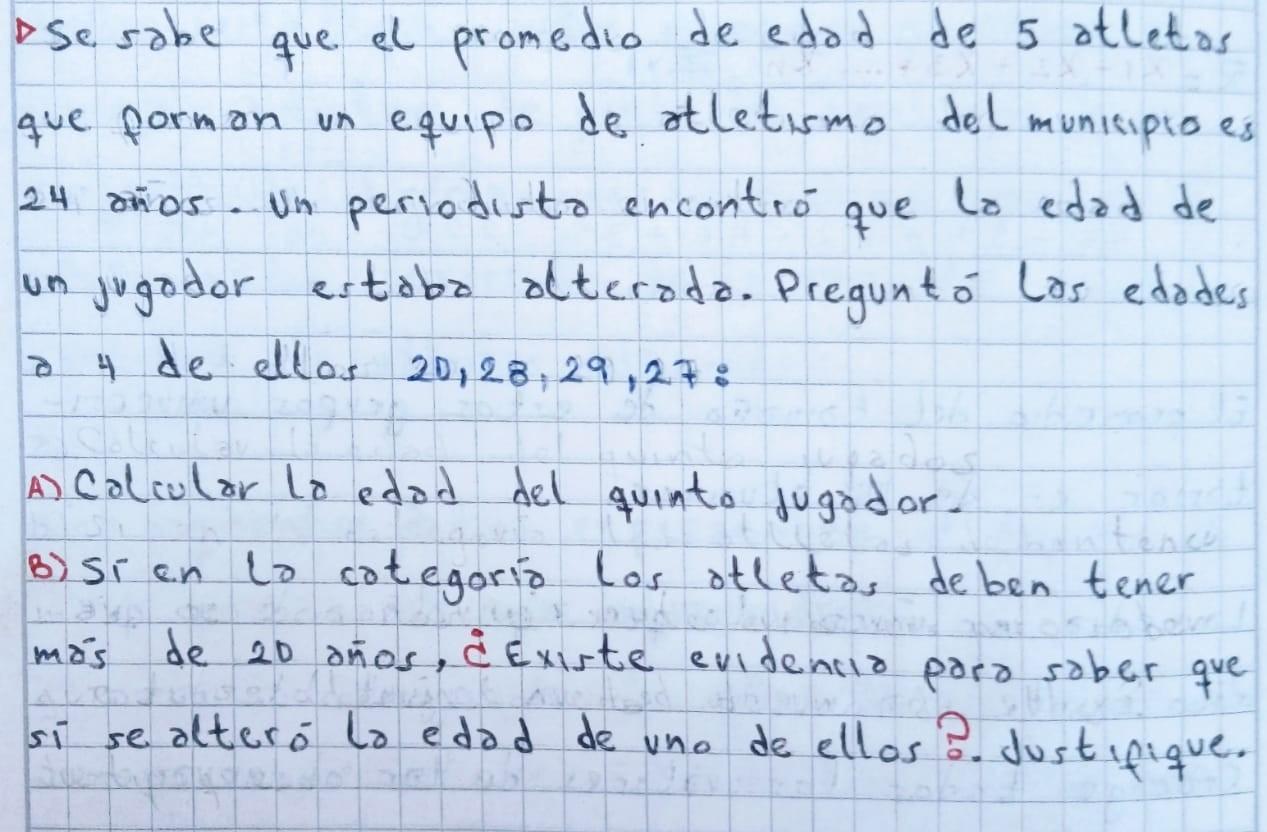 Se sabe que el promedio de edad de 5 atletas
que forman un equipo de atletismo del municipio es
24 años. Un periodista encontró que la edad de
un jugador estaba alterada. Preguntó las edades
a 4 de ellos 20, 28, 29, 27:
A) Calcular la edad del quinto jugador.
B) Sí en la categoría los atletas deben tener
más de 20 años, ¿Existe evidencia para saber que
sí se alteró la edad de uno de ellos?. Justifique.